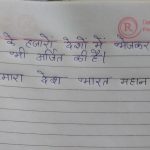 के हजारो देशों में भेजकर
भी अर्जित की है।
मारा देश भारत महान